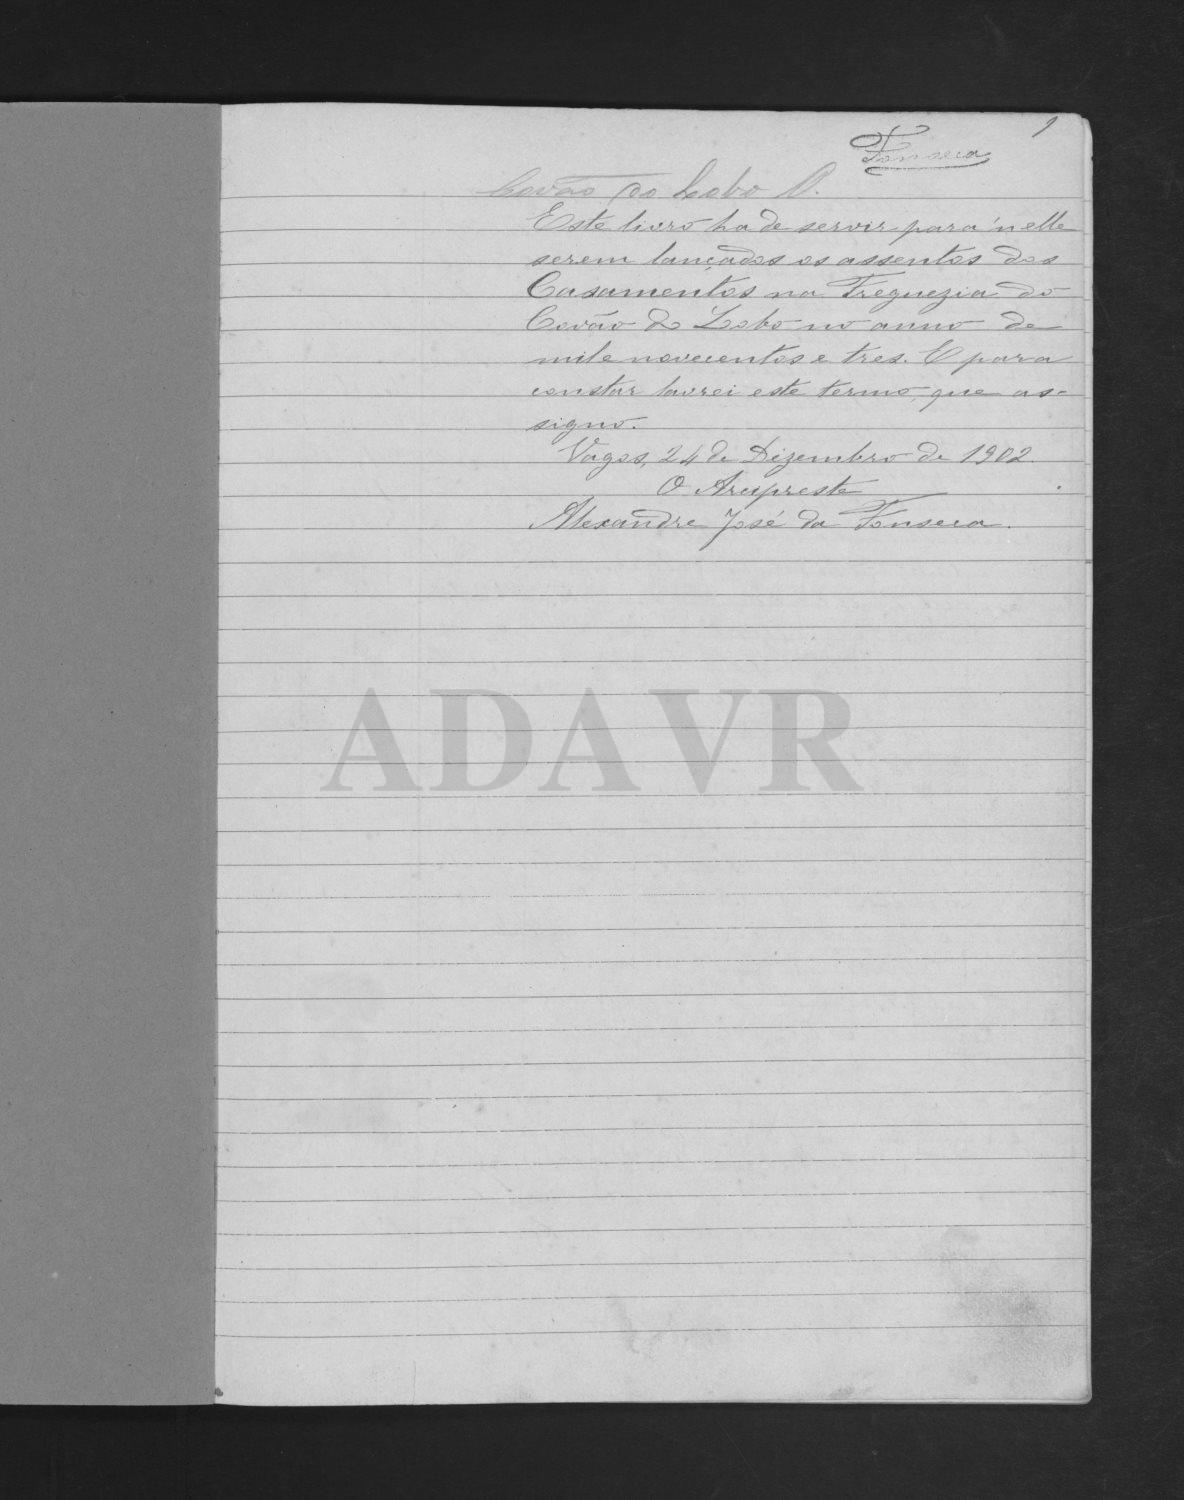 1
Fonseca
Covão do Lobo
Este livro ha de servir para n'elle
serem lançados os assentos dos
Casamentos na Freguezia do
Covão do Lobo no anno de
mil e novecentos e tres. E para
constar lavrei este termo, que as-
signo.
Vagos, 24 de Dizembro de 1902.
O Arcipreste
Alexandre José da Fonseca.
ADAVR